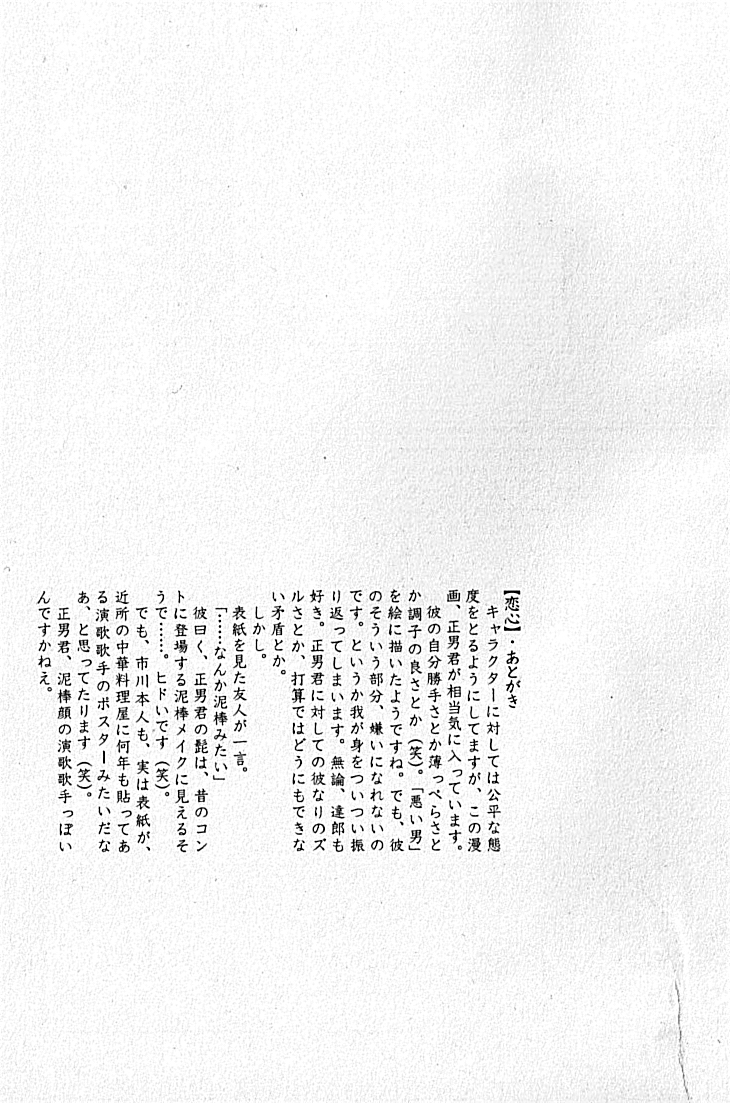 【恋心】・あとがき
　キャラクターに対しては公平な態
度をとるようにしてますが、この漫
画、正男君が相当気に入っています。
　彼の自分勝手さとか薄っぺらさと
か調子の良さとか（笑）。「悪い男」
を絵に描いたようですね。でも、彼
のそういう部分、嫌いになれないの
です。というか我が身をついつい振
り返ってしまいます。無論、達郎も
好き。正男君に対しての彼なりのズ
ルさとか、打算ではどうにもできな
い矛盾とか。
　しかし。
　表紙を見た友人が一言。
「……なんか泥棒みたい」
　彼曰く、正男君の髭は、昔のコン
トに登場する泥棒メイクに見えるそ
うで……。ヒドいです（笑）。
　でも、市川本人も、実は表紙が、
近所の中華料理屋に何年も貼ってあ
る演歌歌手のポスターみたいだな
あ、と思ってたります（笑）。
　正男君、泥棒顔の演歌歌手っぽい
んですかねえ。